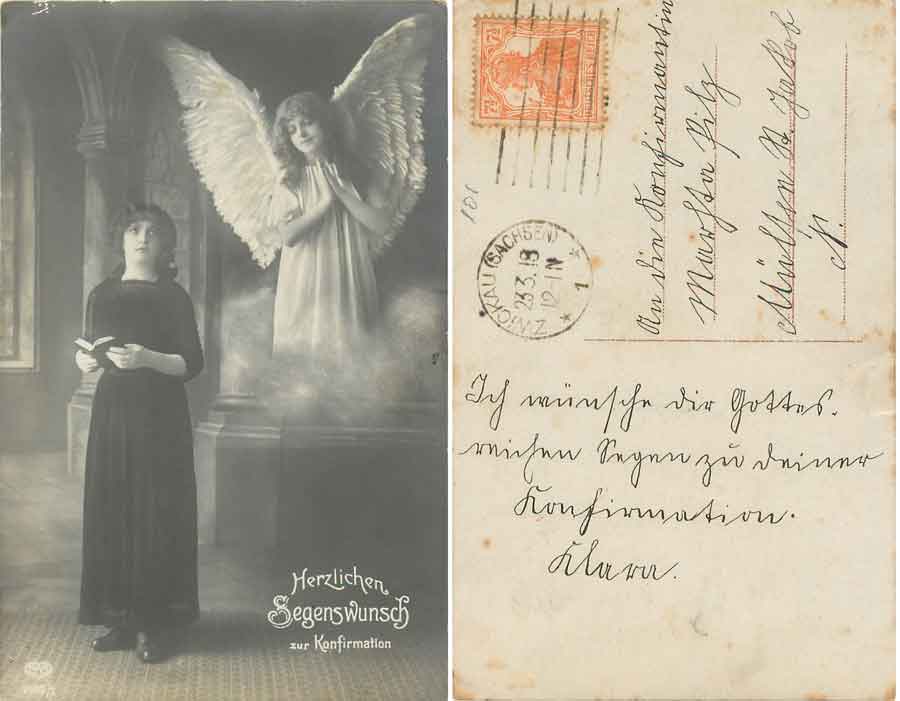 Herzlichen
Segenswunsch
zur Konfirmation
7½ 7½
DEUTSCHES REICH
101
ZWICKAU (SACHSEN)
23.3.18
12-1 N
* 1 *
An die Konfirmantin
Martha Pilz
Mülsen St. Jakob
Ich wünsche dir Gottes.
reichen Segen zu deiner
Konfirmation.
Klara.